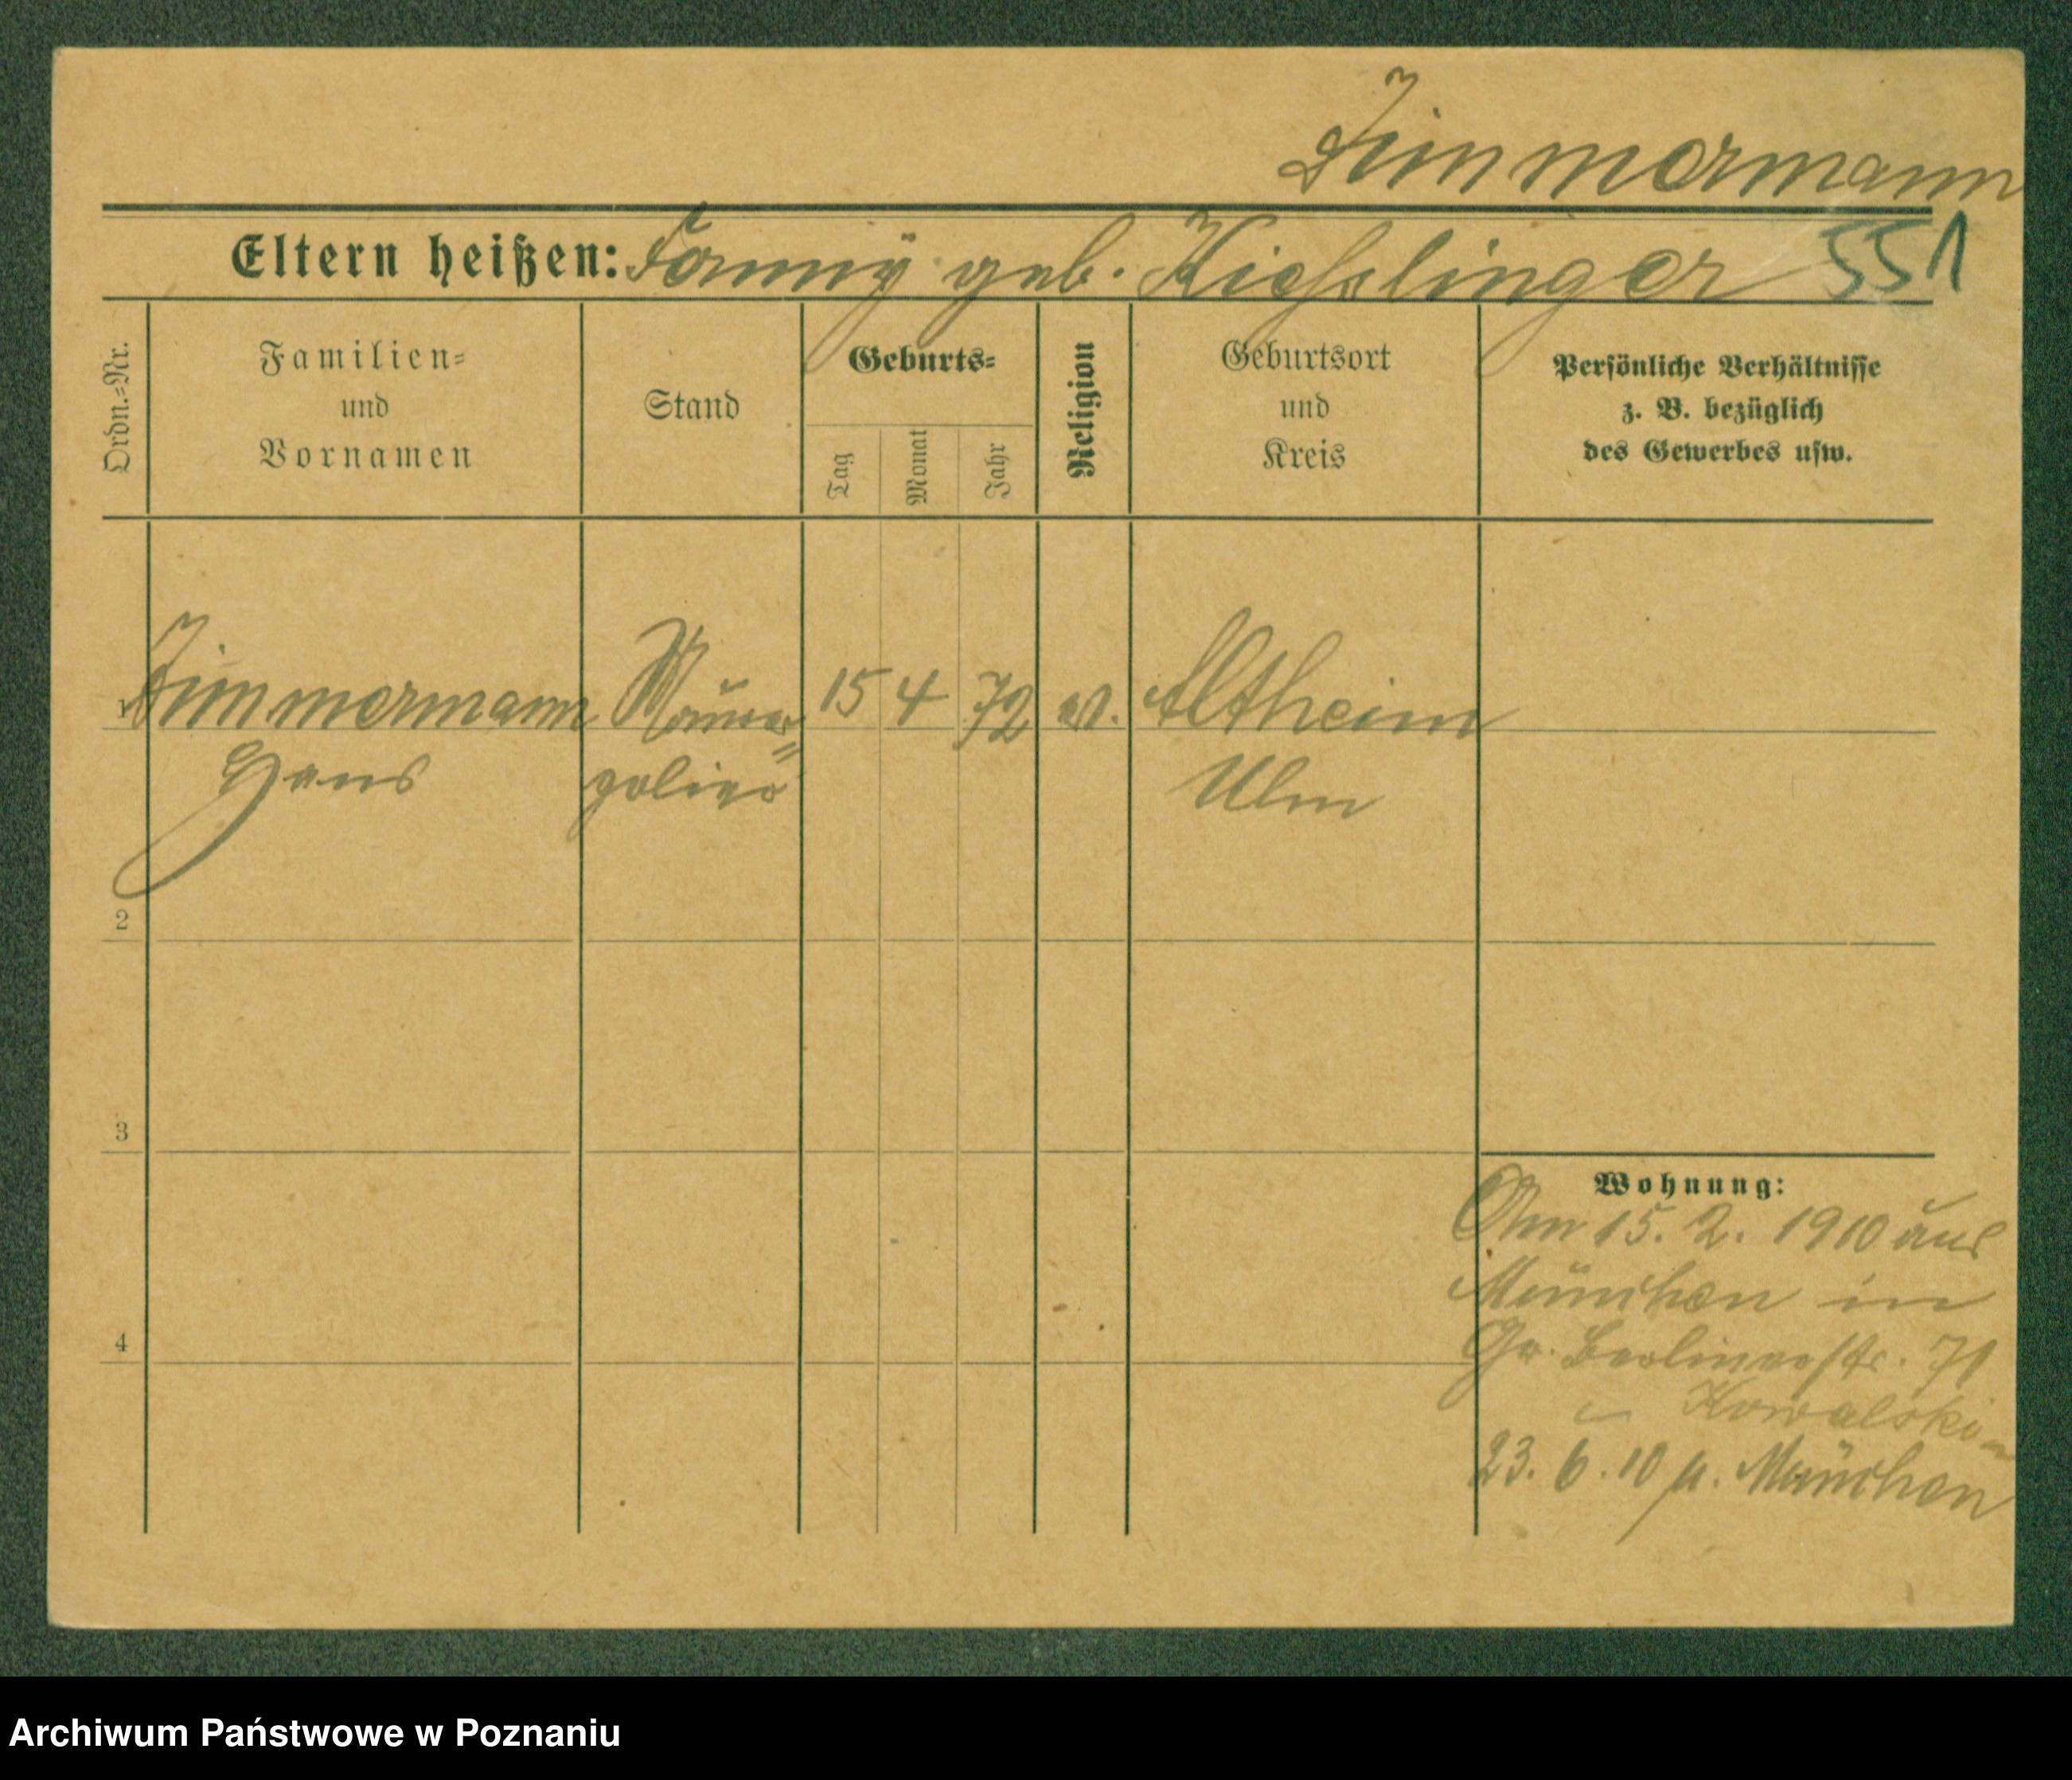 Zimmermann
Eltern heißen: Fanny geb. Kiesslinger 551
Ordn.=Nr.
Familien=
und
Vornamen
Stand
Geburts=
Tag
Monat
Jahr
Religion
Geburtsort
und
Kreis
Persönliche Verhältnisse
z. B. bezüglich
des Gewerbes usw.
1 Zimmermann Maurer= 15 4 72 ev. Altheim
Hans polier Ulm
2
3
4
Wohnung:
Am 15. 2. 1910 aus
München in
Gr. Berlinerstr. 71
Kowalski
23. 6. 10 n. München
Archiwum Państwowe w Poznaniu